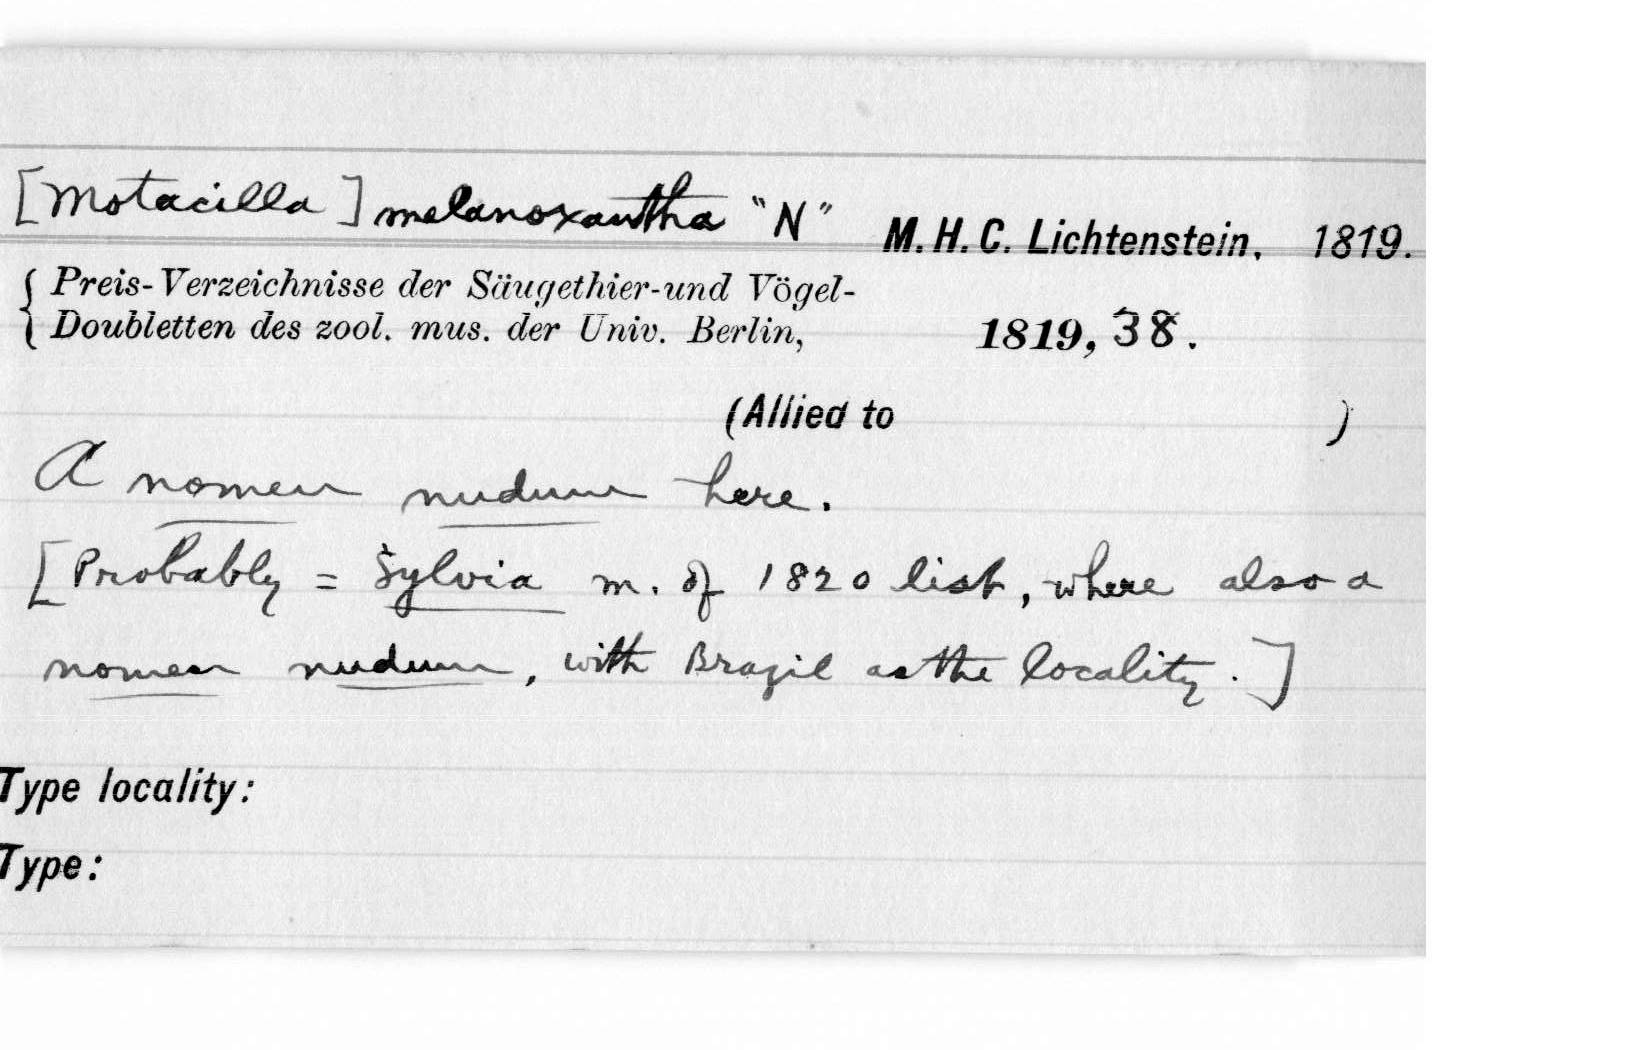 [Motacilla] melanoxantha "N" M. H. C. Lichtenstein, 1819.
{ Preis-Verzeichnisse der Säugethier-und Vögel-
Doubletten des zool. mus. der Univ. Berlin, 1819, 38.
(Allied to )
A nomen nudum here.
[Probably = Sylvia m. of 1820 list, where also a
nomen nudum, with Brazil as the locality.]
Type locality:
Type: